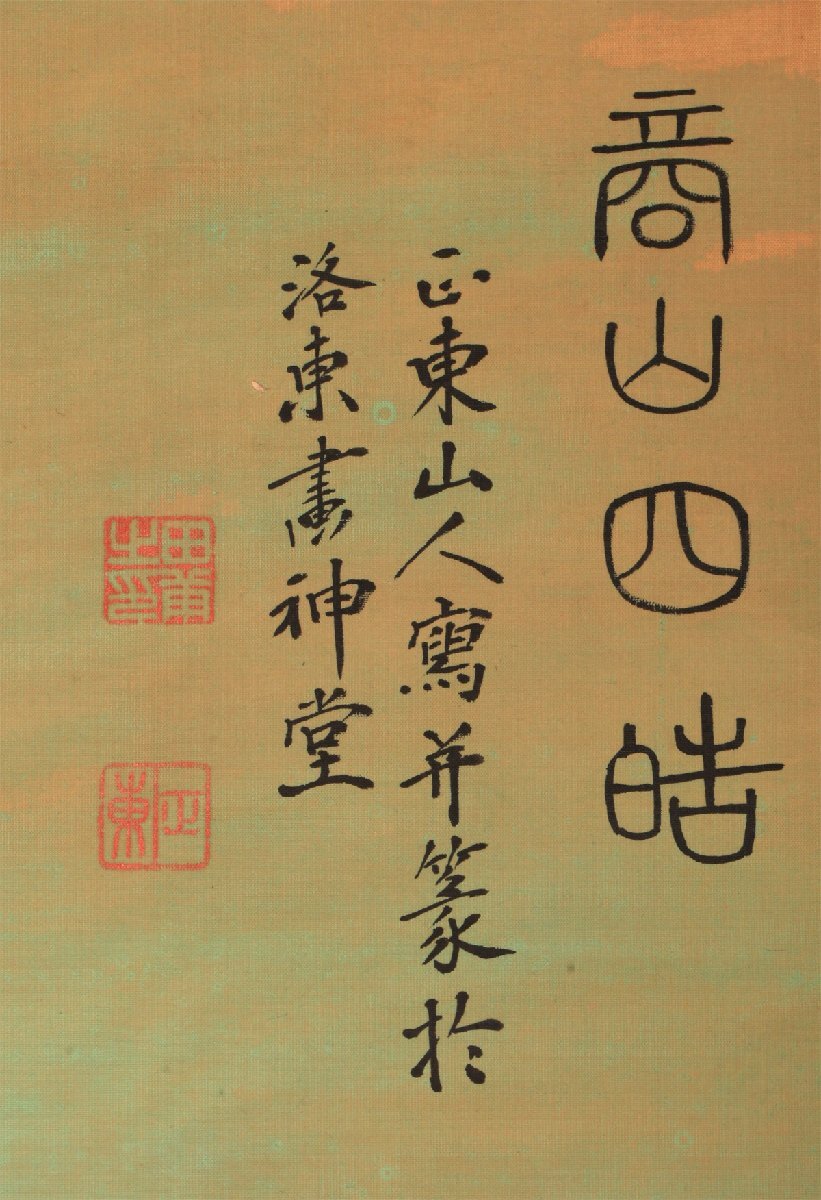 商山四皓
正東山人寫并篆於
洛東畫神堂
正東